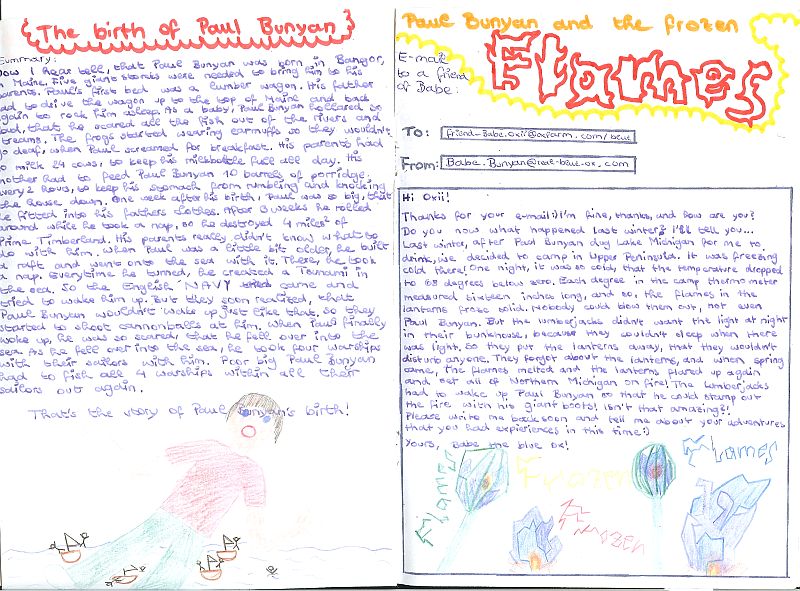 The birth of Paul Bunyan
Summary:
Now I hear tell, that Paul Bunyan was born in Bangor,
in Maine. Five giant storcks were needed to bring him to his
parents. Paul's first bed was a lumber wagon. His father
had to drive the wagon up to the top of Maine and back
again to rock him asleep. As a baby, Paul Bunyan screamed so
loud, that he scared all the fish out of the rivers and
streams. The frogs started wearing earmuffs so they wouldn't
go deaf, when Paul screamed for breakfast. His parents had
to milk 24 cows, to keep his milkbottle full all day. His
mother had to feed Paul Bunyan 10 barrels of porridge
every 2 hours, to keep his stomach from rumbling and knocking
the house down. One week after his birth, Paul was so big, that
he fitted into his fathers clothes. After 3 weeks he rolled
around while he took a nap, so he destroyed 4 miles² of
Prime Timberland. His parents really didn't know what to
do with him. When Paul was a little bit older, he built
a raft and went onto the sea with it. There, he took
a nap. Everytime he turned, he created a Tsunami in
the sea. So the English NAVY came and
tried to wake him up. But they soon realized, that
Paul Bunyan wouldn't wake up just like that. So they
started to shoot cannonballs at him. When Paul finally
woke up, he was so scared, that he fell over into the
sea. As he fell over into the sea, he took four warships
with their sailors with him. Poor big Paul Bunyan
had to fish all 4 warships within all their
sailors out again.
That's the story of Paul Bunyan's birth!
Paul Bunyan and the frozen
Flames
E-mail
to a friend
of Babe:
To: friend-Babe.Oxii@oxiarm.com/blue
From: Babe.Bunyan@real-blue-ox.com
Hi Oxii!
Thanks for your e-mail:) I'm fine, thanks, and how are you?
Do you now what happened last winter? I'll tell you...
Last winter, after Paul Bunyan dug Lake Michigan for me to
drink, we decided to camp in Upper Peninsula. It was freezing
cold there! One night, it was so cold, that the temperature dropped
to 68 degrees below zero. Each degree in the camp thermometer
measured sixteen inches long, and so, the flames in the
lanterns froze solid. Nobody could blow them out, not even
Paul Bunyan. But the lumberjacks didn't want the light at night
in their bunkhouse, because they couldn't sleep when there
was light. So they put the lanterns away, that they wouldn't
disturb anyone. They forgot about the lanterns, and when spring
came, the flames melted and the lanterns flared up again
and set all of Northern Michigan on fire! The lumberjacks
had to wake up Paul Bunyan so that he could stamp out
the fire with his giant boots! Isn't that amazing?!
Please write me back soon and tell me about your adventures
that you had experiences in this time:)
Yours, Babe the blue ox!
Flames
Frozen
Flames
Frozen